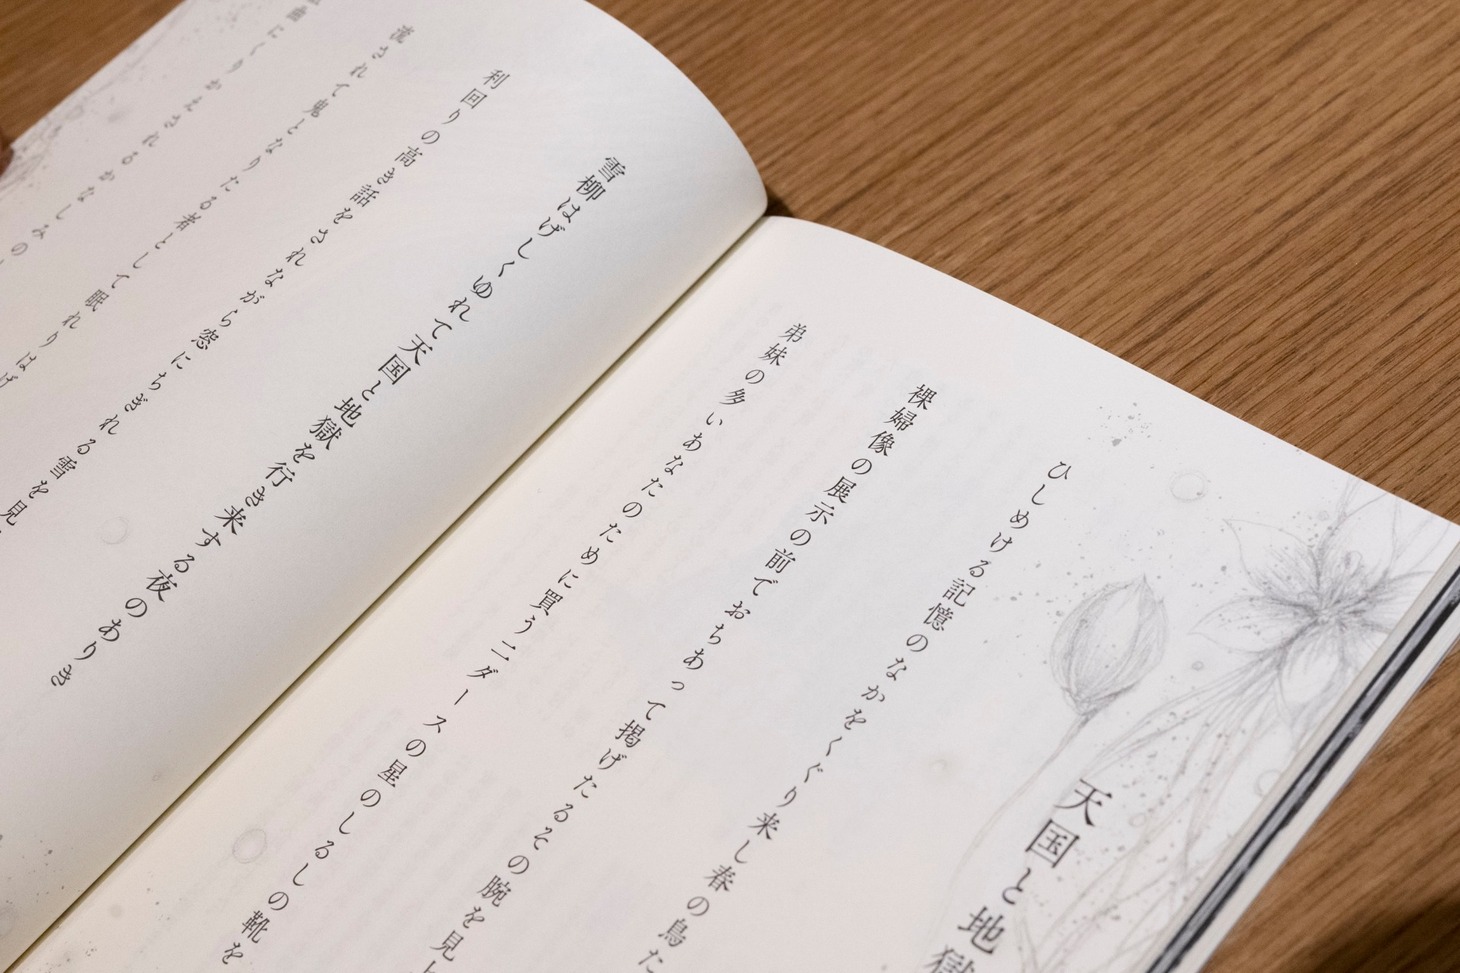 天国と地獄
ひしめける記憶のなかをくぐり来し春の鳥た
裸婦像の展示の前でおちあって掲げたるその腕を見上
弟妹の多いあなたのために買う二ダースの星のしるしの靴を
雪柳はげしくゆれて天国と地獄を行き来する夜のありき
利回りの高き話をされながら窓にちぎれる雪を見
流されて鬼となりたる者として眠れりはげ
曲にくりかえされるかなしみの